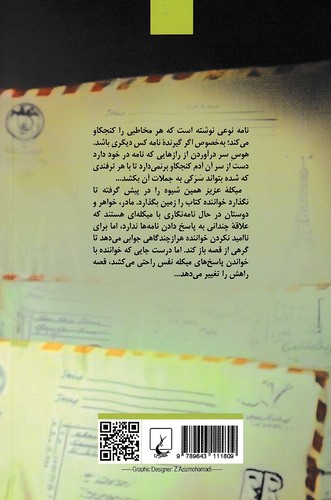 نامه نوعی نوشته است که هر مخاطبی را کنجکاو
می‌کند؛ به‌خصوص اگر گیرندهٔ نامه کس دیگری باشد.
هوس سر درآوردن از رازهایی که نامه در خود دارد
دست از سر آن آدم کنجکاو برنمی‌دارد تا با هر ترفندی
که شده بتواند سَرَکی به جملات آن بکشد...
میکلهٔ عزیز همین شیوه را در پیش گرفته تا
نگذارد خواننده کتاب را زمین بگذارد. مادر، خواهر و
دوستان در حال نامه‌نگاری با میکله‌ای هستند که
علاقهٔ چندانی به پاسخ دادن نامه‌ها ندارد، اما برای
ناامید نکردن خواننده هرازچندگاهی جوابی می‌دهد تا
گرهی از قصه باز کند. اما درست جایی که خواننده با
خواندن پاسخ‌های میکله نفس راحتی می‌کشد، قصه
راهش را تغییر می‌دهد...
9 789643 111809
Graphic Designer: Z.Azizmohamadi